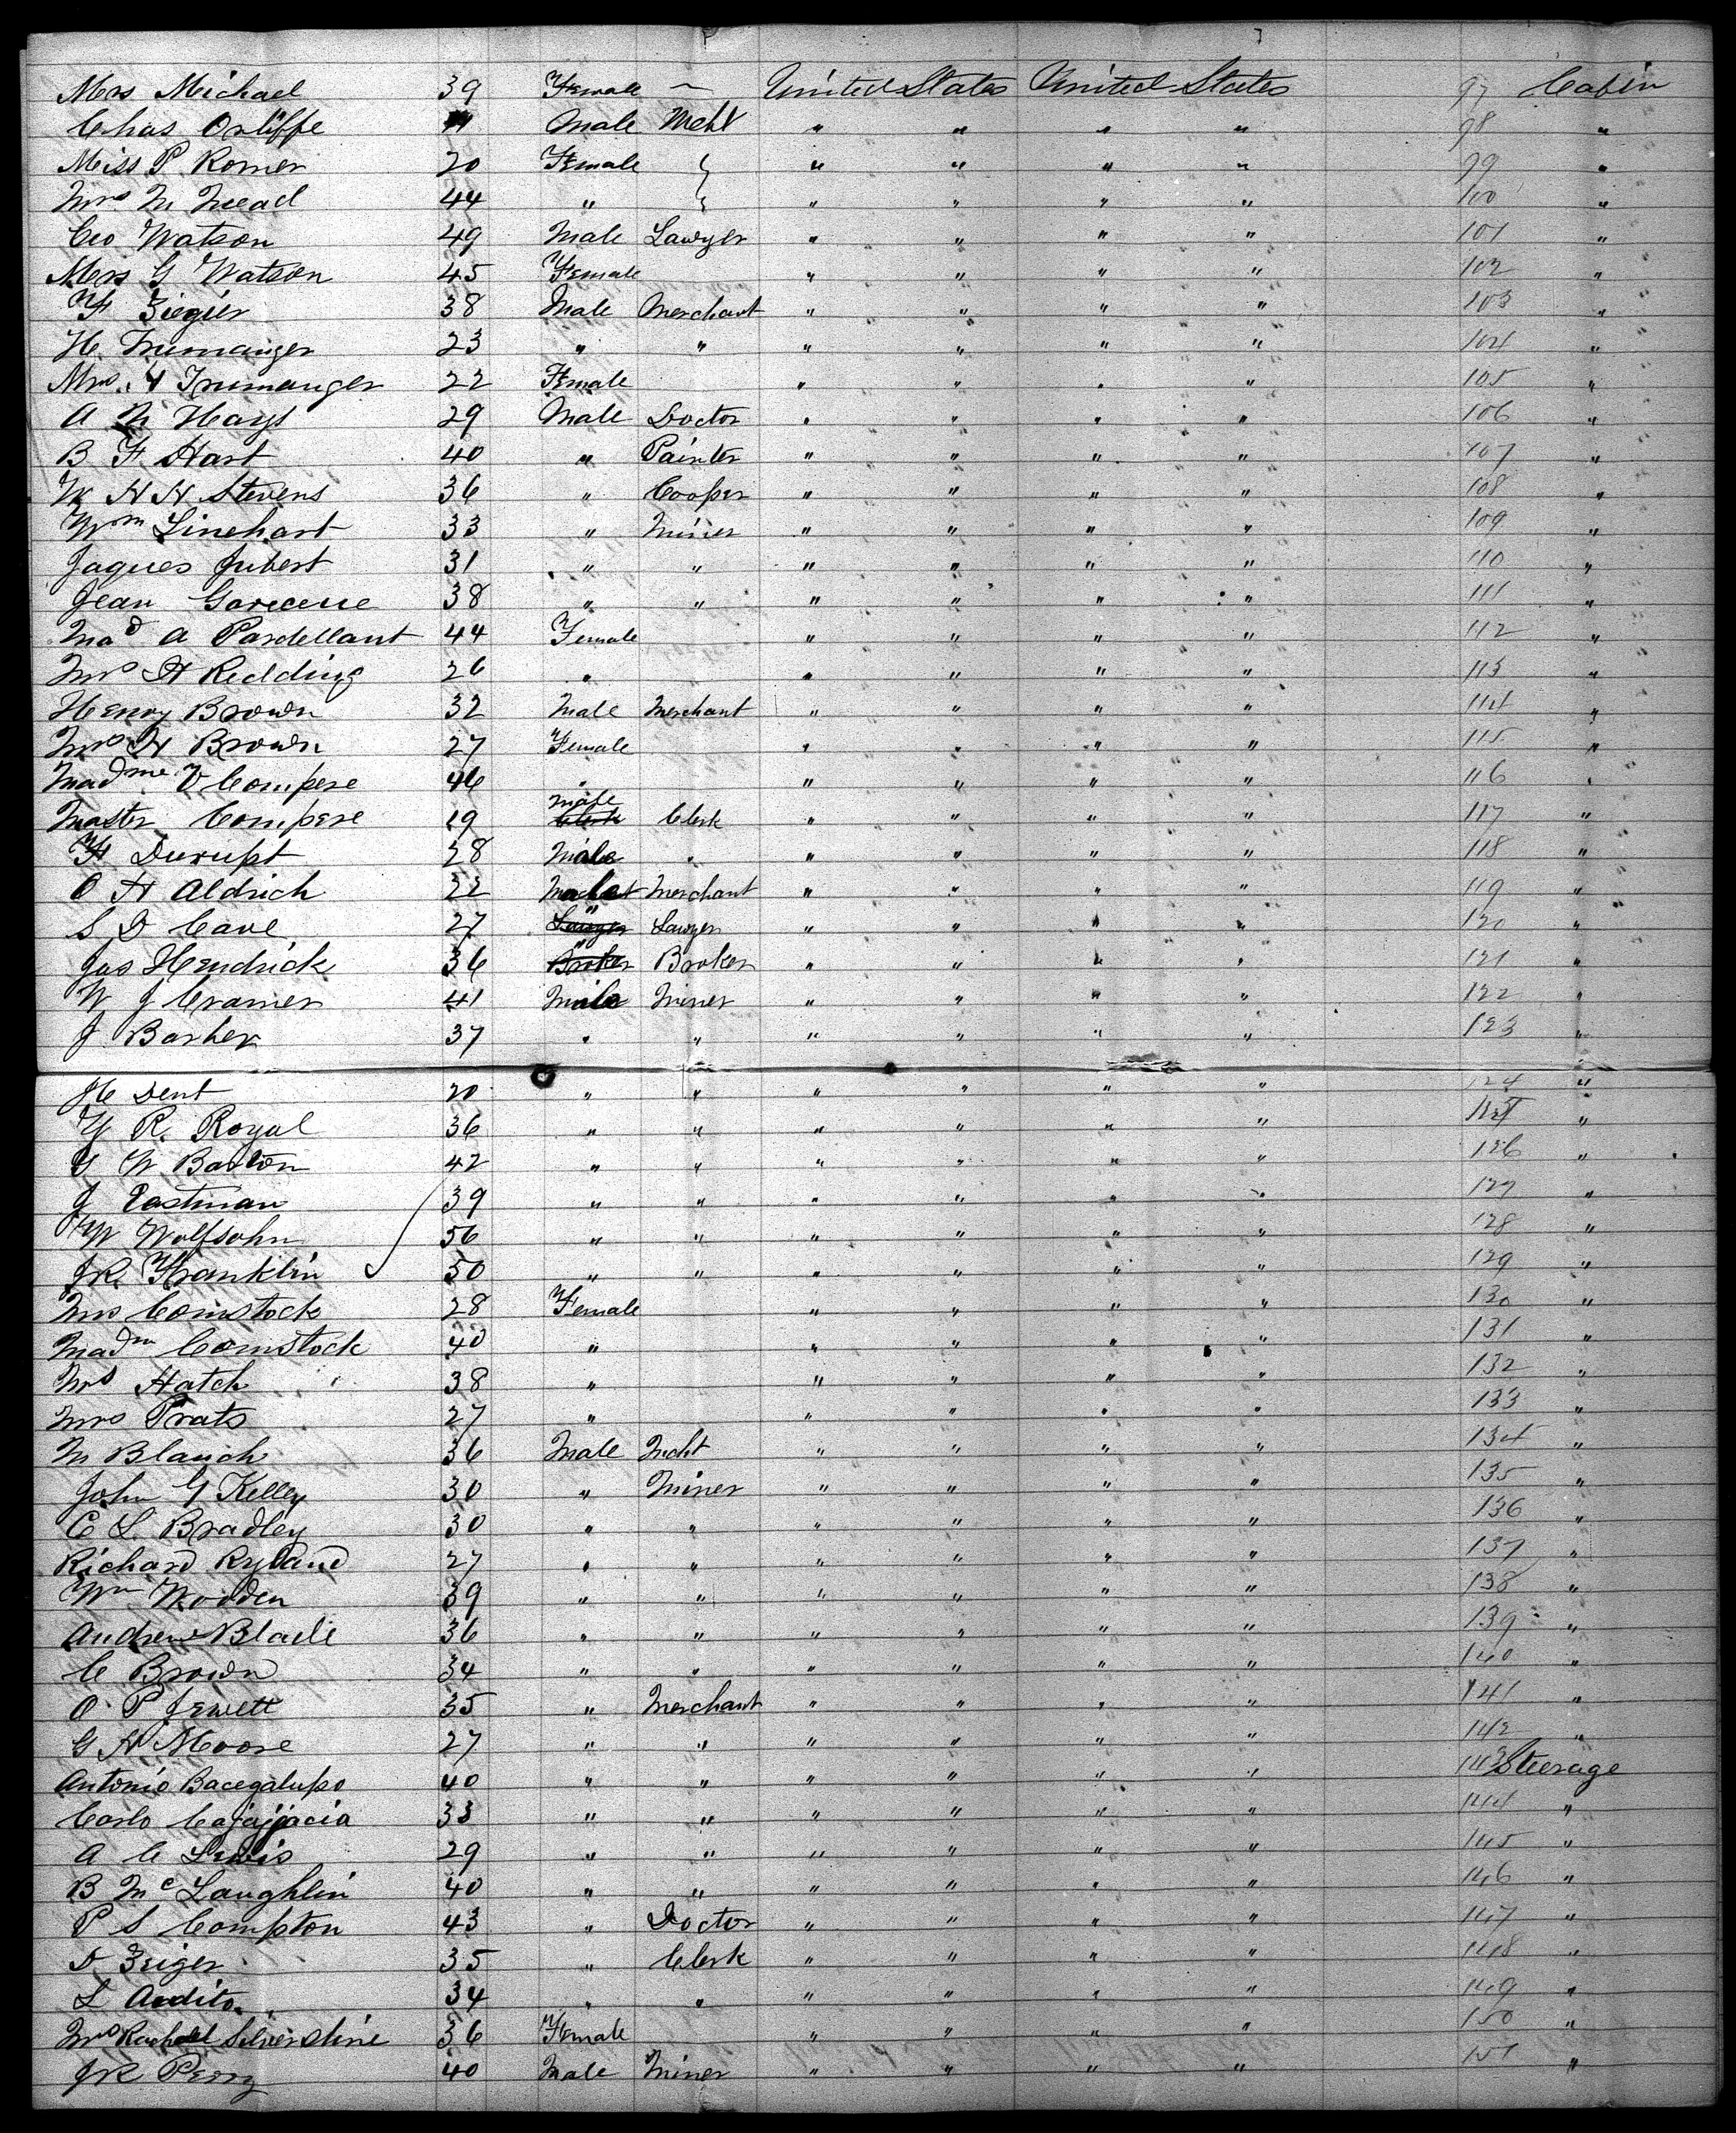 Mrs Michael 39 Female — United States United States 97 Cabin
Chas Orliffe Male Mcht " " " " 98 "
Miss P. Romer 20 Female " " " " 99 "
Mrs M Mead 44 " " " " " 100 "
Geo Watson 49 Male Lawyer " " " " 101 "
Mrs G Watson 45 Female " " " " 102 "
F Ziegler 38 Male Merchant " " " " 103 "
H. Trumanger 23 " " " " " " 104 "
Mrs. H Trumanger 22 Female " " " " 105 "
A M Hays 29 Male Doctor " " " " 106 "
B F Hart 40 " Painter " " " " 107 "
W H H Stevens 36 " Cooper " " " " 108 "
Wm Linehart 33 " Miner " " " " 109 "
Jaques Jubert 31 " " " " " " 110 "
Jean 38 " " " " " " 111 "
Mad A Pardellant 44 Female " " " " 112 "
Mrs H Redding 26 " " " " " 113 "
Henry Brown 32 Male Merchant " " " " 114 "
Mrs H Brown 27 Female " " " " 115 "
Madme V Compere 46 " " " " " 116 "
Master Compere 19 Male Clerk " " " " 117 "
F Durupt 28 Male " " " " " 118 "
O H Aldrich 22 Male Merchant " " " " 119 "
S D Cave 27 " Lawyer " " " " 120 "
Jas Hendrick 36 " Broker " " " " 121 "
W J Cramer 41 Male Miner " " " " 122 "
J Barker 37 " " " " " " 123 "
H Dent 20 " " " " " " 124 "
Y R. Royal 36 " " " " " " 125 "
G W Barton 42 " " " " " " 126 "
J Eastman 39 " " " " " " 127 "
W Wolfsohn 56 " " " " " " 128 "
J R. Franklin 50 " " " " " " 129 "
Mrs Comstock 28 Female " " " " 130 "
Madm Comstock 40 " " " " " 131 "
Mrs Hatch 38 " " " " " 132 "
Mrs Prats 27 " " " " " 133 "
M Blanch 36 Male Mcht " " " " 134 "
John G Kelley 30 " Miner " " " " 135 "
C L. Bradley 30 " " " " " " 136 "
Richard Ryland 27 " " " " " " 137 "
Wm Wodden 39 " " " " " " 138 "
Andrew 36 " " " " " " 139 "
C Brown 34 " " " " " " 140 "
O. P Jewett 35 " Merchant " " " " 141 "
G H Moore 27 " " " " " " 142 "
Antonio Bacegalupo 40 " " " " " " 143 Steerage
Carlo 33 " " " " " " 144 "
A C Lewis 29 " " " " " " 145 "
B McLaughlin 40 " " " " " " 146 "
P S Compton 43 " Doctor " " " " 147 "
D Zeiger 35 " Clerk " " " " 148 "
L 34 " " " " " " 149 "
Mrs Rachael Silverstine 36 Female " " " " 150 "
J R Perry 40 Male Miner " " " " 151 "